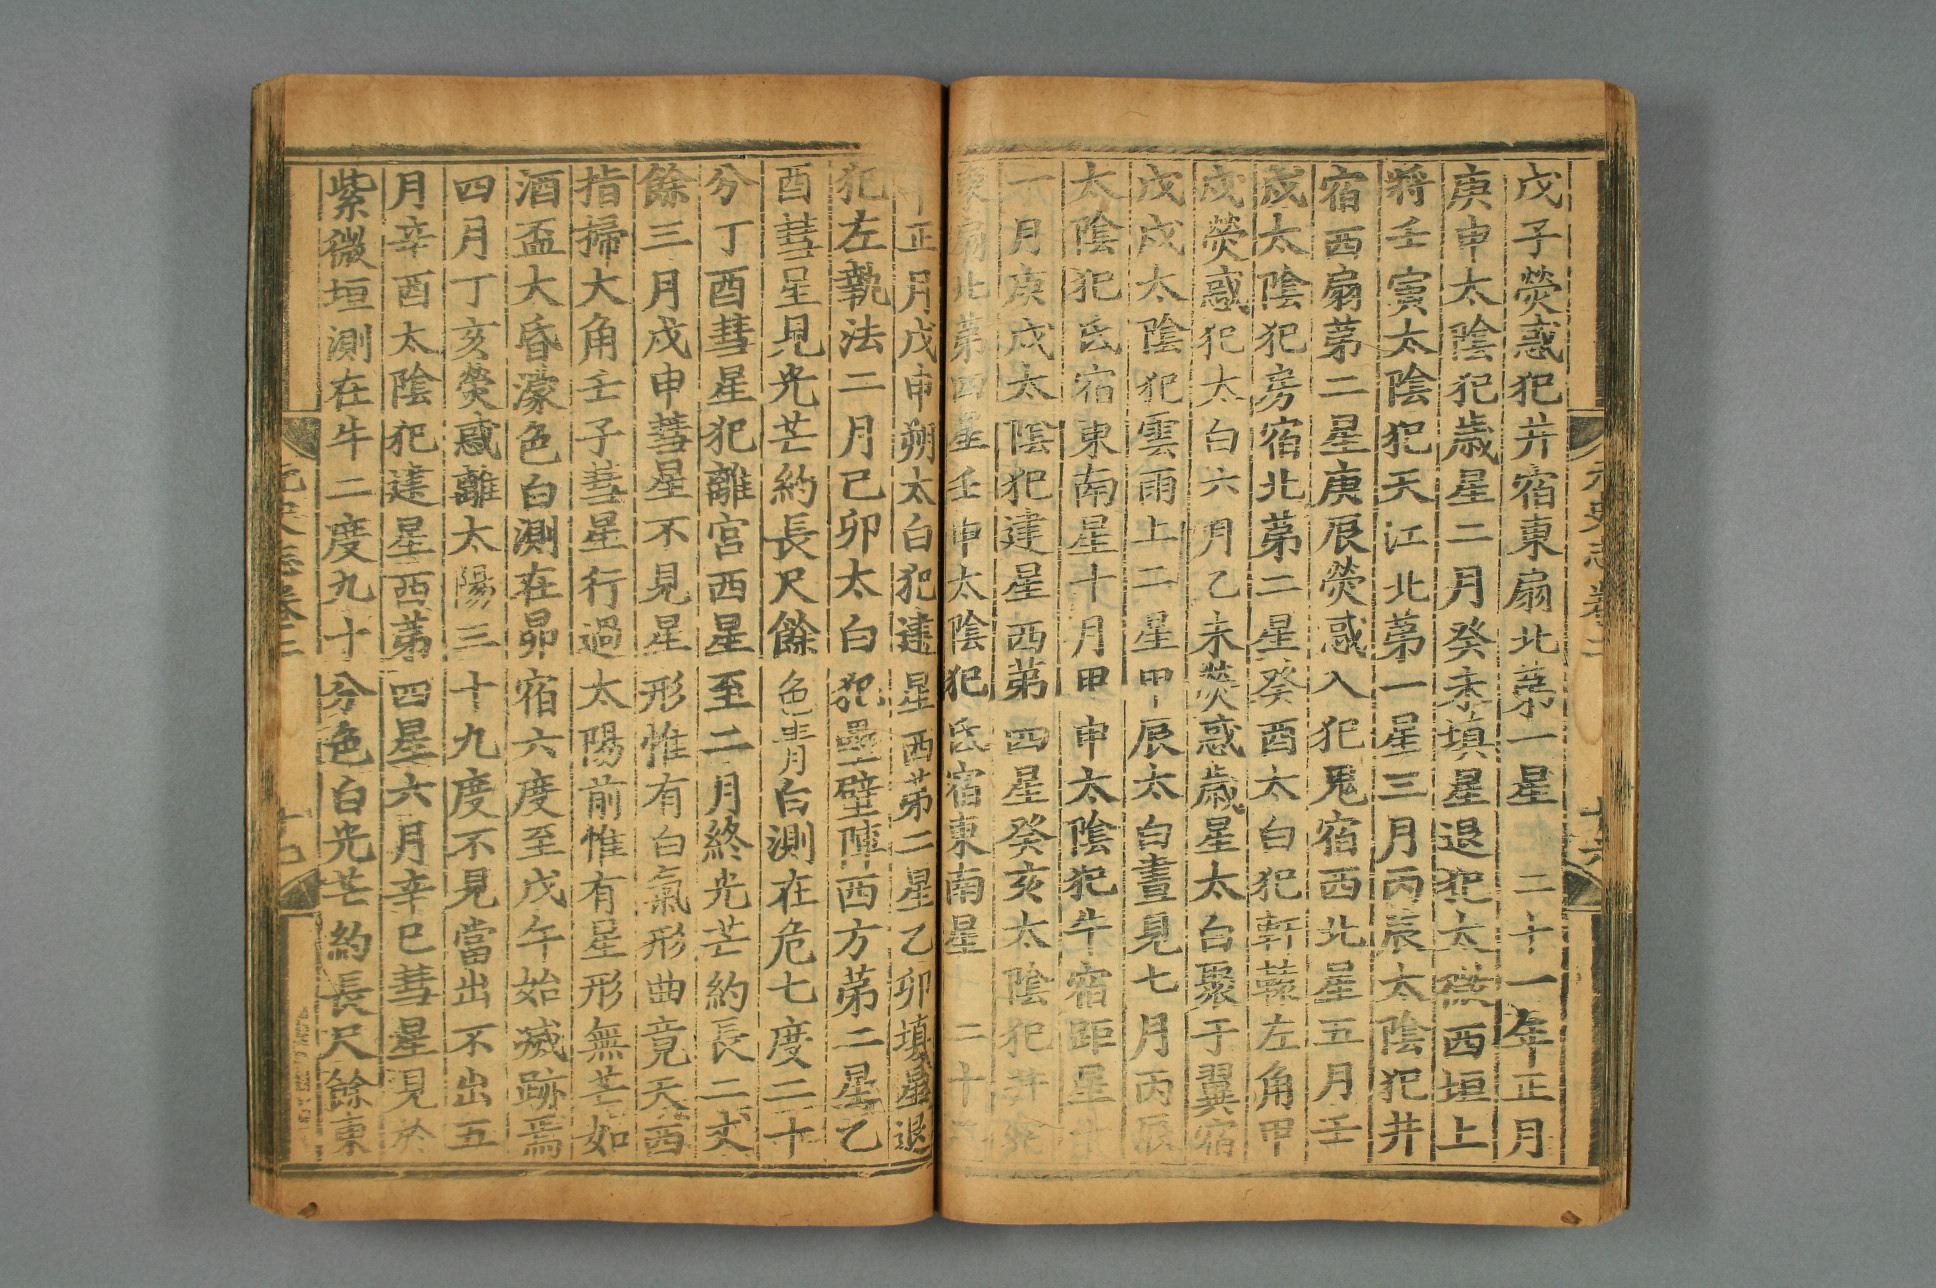 元史志卷二
十六
戊子熒惑犯井宿東扇北第一星二十一年正月
庚申太陰犯歲星二月癸未填星退犯太微西垣上
將壬寅太陰犯天江北第一星三月丙辰太陰犯井
宿西扇第二星庚辰熒惑入犯鬼宿西北星五月壬
戌太陰犯房宿北第二星癸酉太白犯軒轅左角甲
戌熒惑犯太白六月乙未熒惑歲星太白聚于翼宿
戊戌太陰犯雲雨上二星甲辰太白晝見七月丙辰
太陰犯氐宿東南星十月甲申太陰犯牛宿距星
一月庚戌太陰犯建星西第四星癸亥太陰犯井宿
東扇北第四星壬申太陰犯氐宿東南星二十
年正月戊申朔太白犯建星西第二星乙卯填星退
犯左執法二月己卯太白犯壘壁陣西方第二星乙
酉彗星見光芒約長尺餘色青白測在危七度二十
分丁酉彗星犯離宮西星至二月終光芒約長二丈
餘三月戊申彗星不見星形惟有白氣形曲竟天西
指掃大角壬子彗星行過太陽前惟有星形無芒如
酒盃大昏濛色白測在昴宿六度至戊午始滅跡焉
四月丁亥熒惑離太陽三十九度不見當出不出五
月辛酉太陰犯建星西第四星六月辛巳彗星見於
紫微垣測在牛二度九十分色白光芒約長尺餘東
元史志卷二
十七